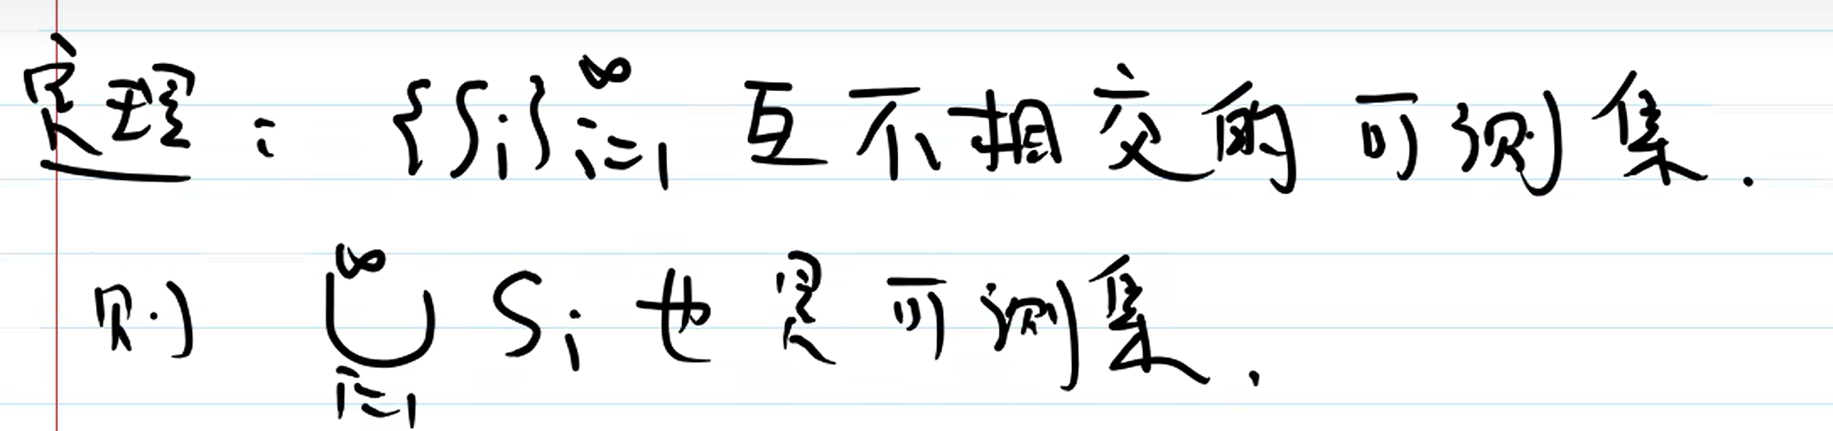 定理：{Sᵢ}ᵢ₌₁^∞ 互不相交的可测集.
则 ⋃ᵢ₌₁^∞ Sᵢ 也是可测集.